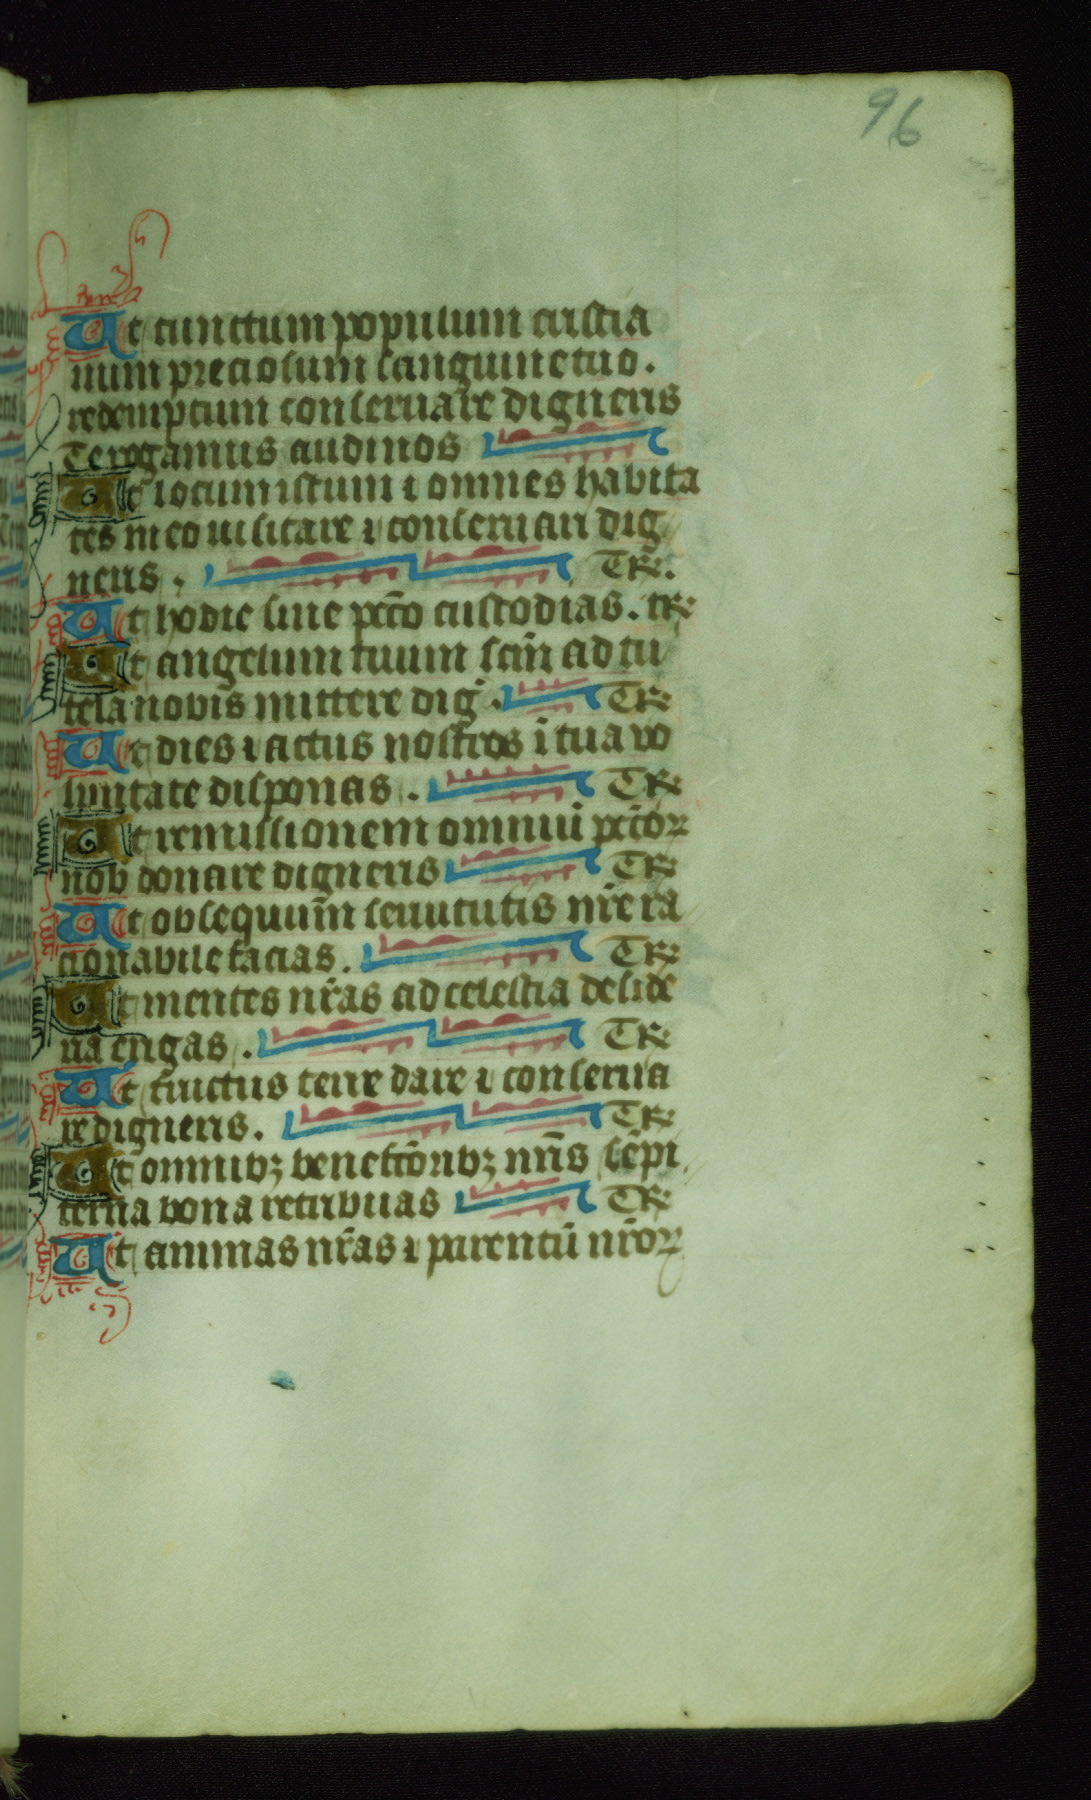 96
Ut cunctum populum cristia
num precioso sanguine tuo.
redemptum conseruare digneris
Te rogamus audi nos
Ut locum istum ⁊ omnes habita
tes in eo uisitare ⁊ conseruari dig
neris. TR.
Ut hodie sine pctō custodias. tR
Ut angelum tuum scm̄ ad tu
tela nobis mittere dig̃. TR
Ut dies ⁊ actus nostros ī tua vo
luntate disponas. TR
Ut remissionem omniū pctōꝝ
nob donare digneris TR
Ut obsequium seruitutis nr̄e ra
cionabile facias. TR
Ut mentes nr̄as ad celestia deside
ria erigas. TR
Ut fructus terre dare ⁊ conserua
re digneris. TR
Ut omnibꝫ benefctōribꝫ nrīs sēpi
terna bona retribuas TR
Ut animas nr̄as ⁊ parentū nr̄oꝝ